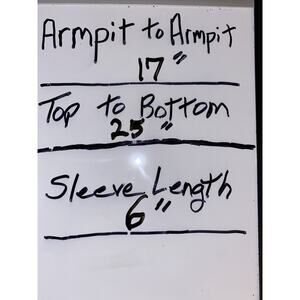 Armpit to Armpit
17"
Top to Bottom
25"
Sleeve Length
6"